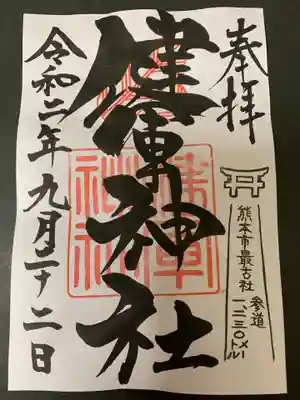 奉拝
熊本市最古社
参道
一、二三〇メートル
健軍神社
令和二年九月二十二日